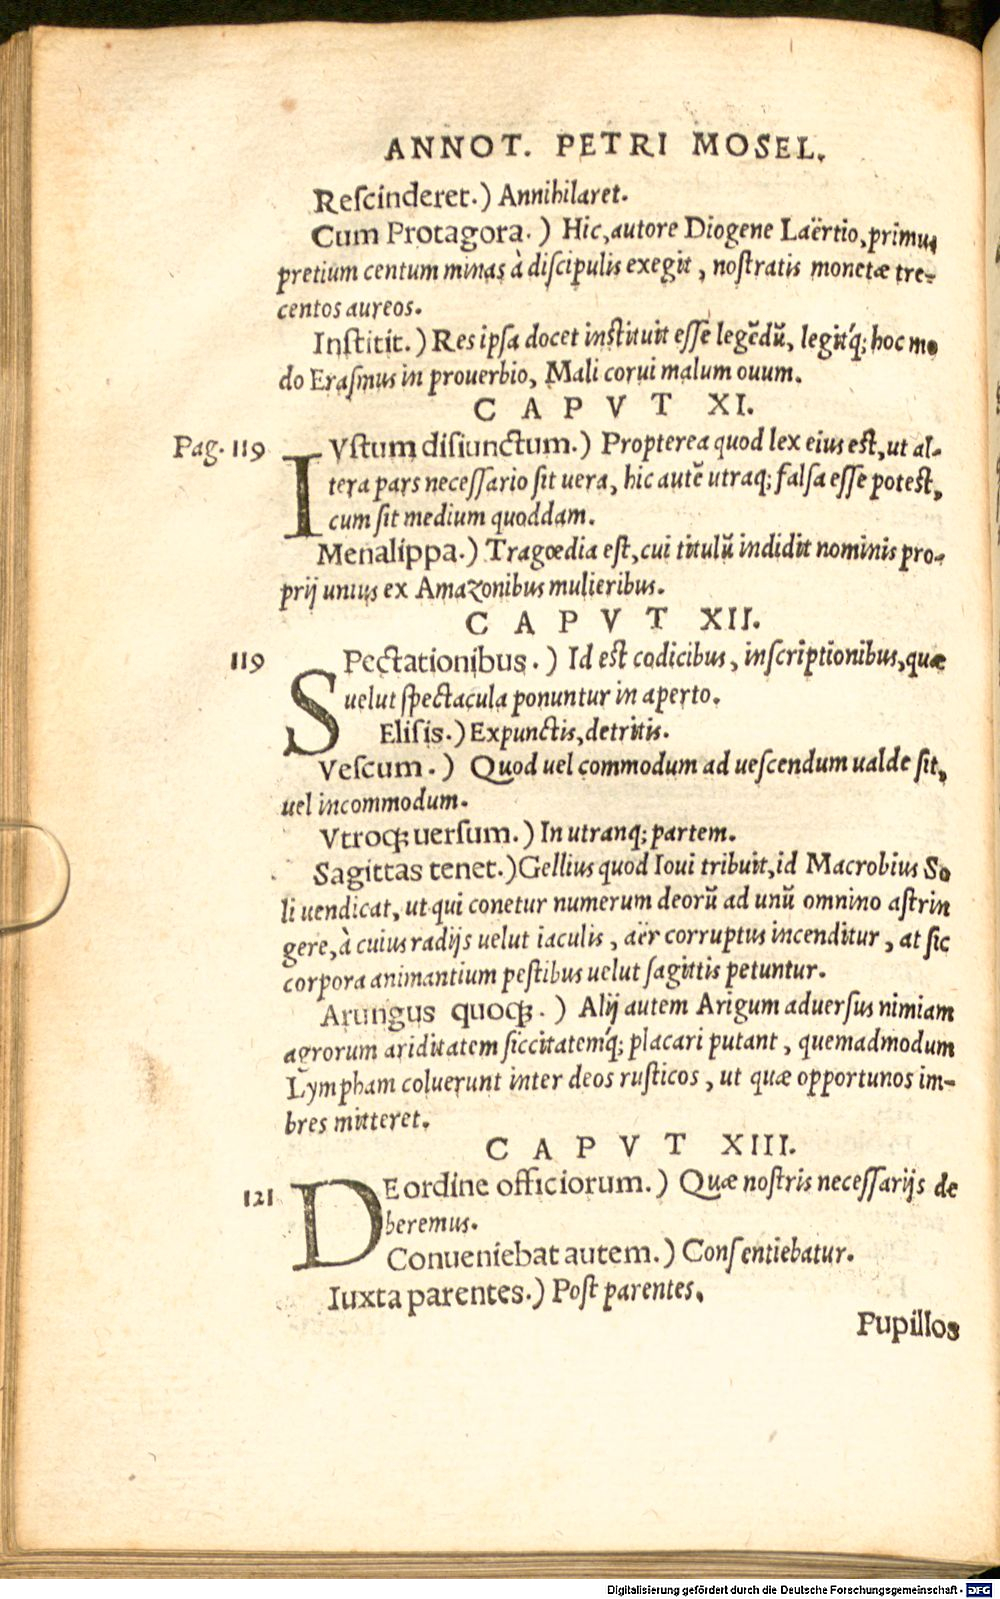 ANNOT. PETRI MOSEL.
Reſcinderet.) Annihilaret.
Cum Protagora.) Hic, autore Diogene Laërtio, primus
pretium centum minas à diſcipulis exegit, noſtratis monetæ tre-
centos aureos.
Inſtitit.) Res ipſa docet inſtituit eſſe legẽdũ, legitq́; hoc mo
do Eraſmus in prouerbio, Mali corui malum ouum.
CAPVT XI.
Pag. 119 IVſtum diſiunctum.) Propterea quod lex eius eſt, ut al-
tera pars neceſſario ſit uera, hic autẽ utraq; falſa eſſe poteſt,
cum ſit medium quoddam.
Menalippa.) Tragœdia eſt, cui titulũ indidit nominis pro-
prij unius ex Amazonibus mulieribus.
CAPVT XII.
119 SPectationibus.) Id eſt codicibus, inſcriptionibus, quæ
uelut ſpectacula ponuntur in aperto.
Eliſis.) Expunctis, detritis.
Veſcum.) Quod uel commodum ad ueſcendum ualde ſit,
uel incommodum.
Vtroq; uerſum.) In utranq; partem.
Sagittas tenet.) Gellius quod Ioui tribuit, id Macrobius So
li uendicat, ut qui conetur numerum deorũ ad unũ omnino aſtrin
gere, à cuius radijs uelut iaculis, aër corruptus incenditur, at ſic
corpora animantium peſtibus uelut ſagittis petuntur.
Arungus quoq;.) Alij autem Arigum aduerſus nimiam
agrorum ariditatem ſiccitatemq́; placari putant, quemadmodum
Lympham coluerunt inter deos ruſticos, ut quæ opportunos im-
bres mitteret.
CAPVT XIII.
121 DE ordine officiorum.) Quæ noſtris neceſſarijs de
beremus.
Conueniebat autem.) Conſentiebatur.
Iuxta parentes.) Poſt parentes.
Pupillos
Digitalisierung gefördert durch die Deutsche Forschungsgemeinschaft - DFG